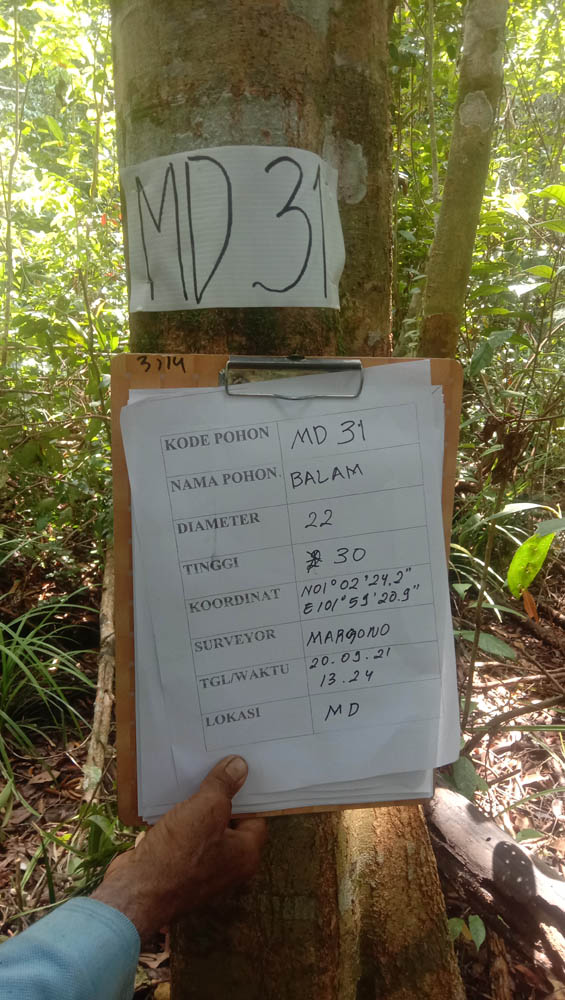 MD 31
3314
KODE POHON MD 31
NAMA POHON. BALAM
DIAMETER 22
TINGGI 30
KOORDINAT N01°02'24.2"
E101°59'20.9"
SURVEYOR MARGONO
TGL/WAKTU 20.09.21
13.24
LOKASI MD